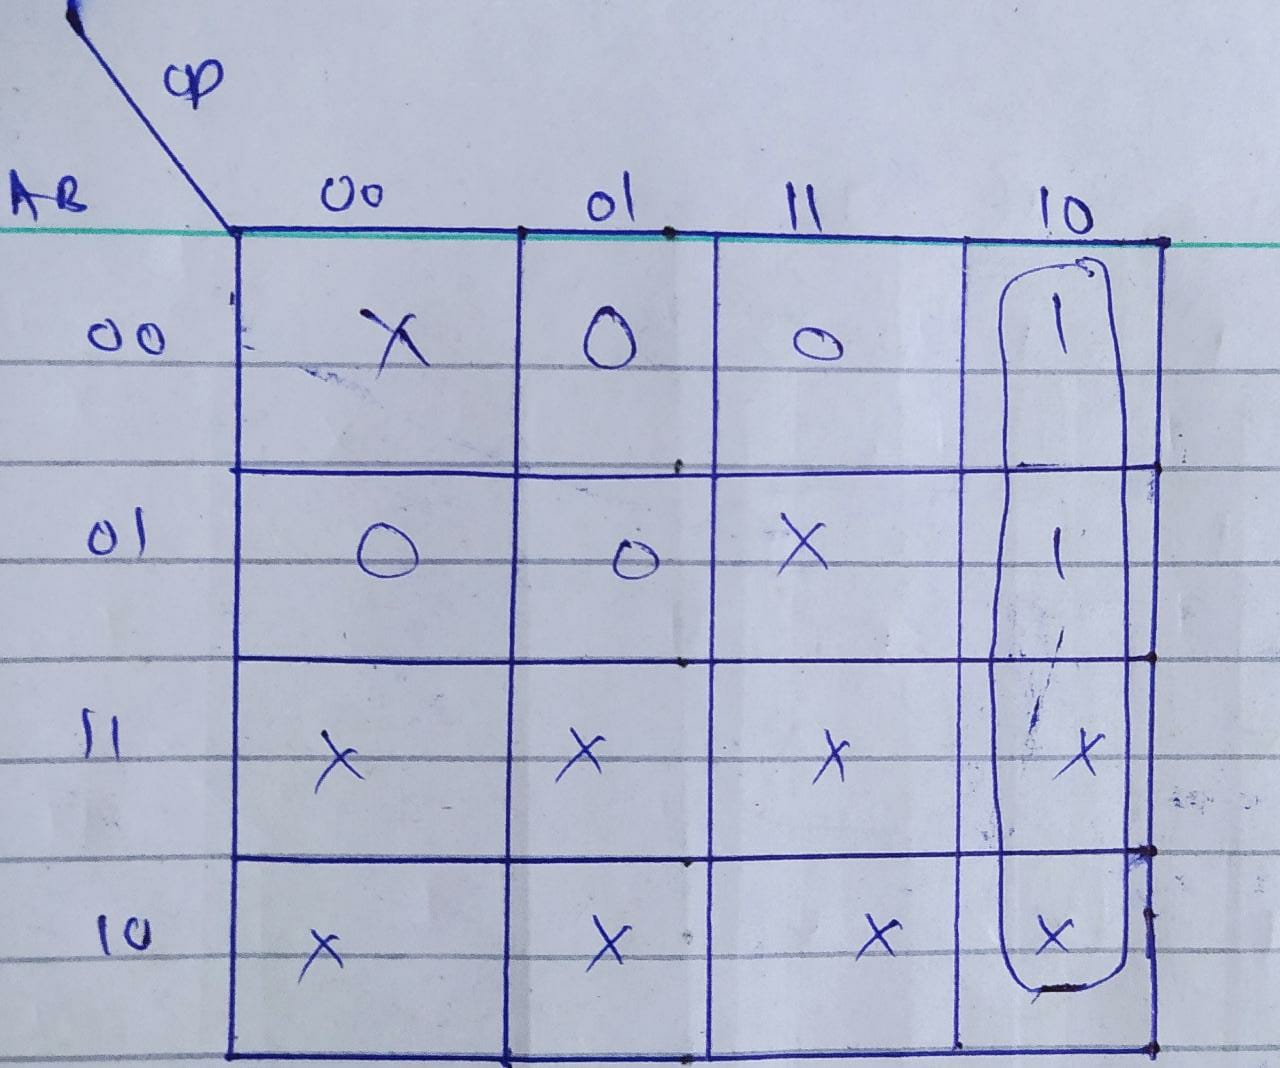 CD
AB 00 01 11 10
00 X 0 0 1
01 0 0 X 1
11 X X X X
10 X X X X